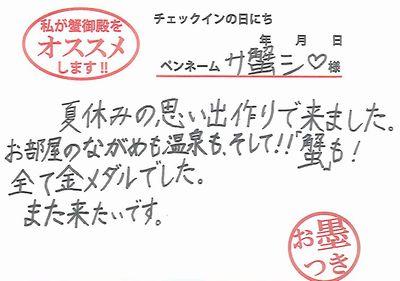 私が蟹御殿を
オススメ
します!!
チェックインの日にち
年 月 日
ペンネーム サ蟹シ♡様
夏休みの思い出作りで来ました。
お部屋のながめも温泉も、そして!!「蟹」も!
全て金メダルでした。
また来たいです。
お墨
つき